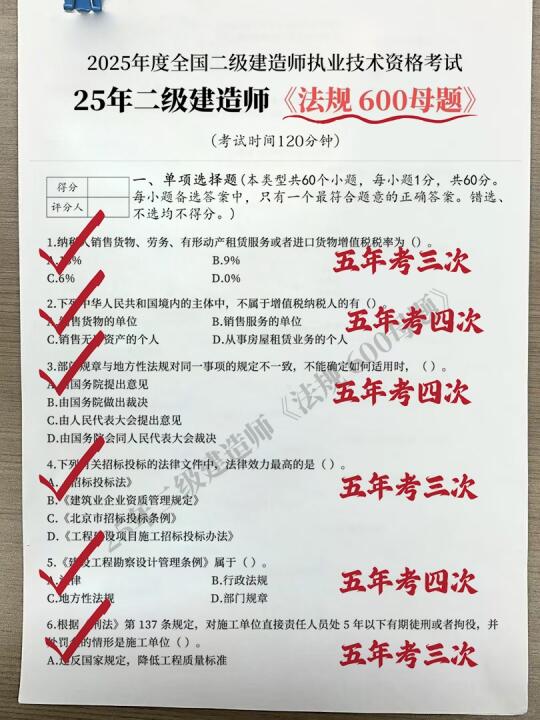 2025年度全国二级建造师执业技术资格考试
25年二级建造师《法规 600母题》
(考试时间120分钟)
得分
评分人
一、单项选择题(本类型共60个小题，每小题1分，共60分。
每小题备选答案中，只有一个最符合题意的正确答案。错选、
不选均不得分。)
1.纳税人销售货物、劳务、有形动产租赁服务或者进口货物增值税税率为（）。
A.13% B.9%
C.6% D.0%
五年考三次
2.下列中华人民共和国境内的主体中，不属于增值税纳税人的有（）。
A.销售货物的单位 B.销售服务的单位
C.销售无形资产的个人 D.从事房屋租赁业务的个人
五年考四次
3.部门规章与地方性法规对同一事项的规定不一致，不能确定如何适用时，（）。
A.由国务院提出意见
B.由国务院做出裁决
C.由人民代表大会提出意见
D.由国务院会同人民代表大会裁决
五年考四次
4.下列有关招标投标的法律文件中，法律效力最高的是（）。
A.《招标投标法》
B.《建筑业企业资质管理规定》
C.《北京市招标投标条例》
D.《工程建设项目施工招标投标办法》
五年考三次
5.《建设工程勘察设计管理条例》属于（）。
A.法律 B.行政法规
C.地方性法规 D.部门规章
五年考四次
6.根据《刑法》第 137 条规定，对施工单位直接责任人员处 5 年以下有期徒刑或者拘役，并
处罚金的情形是施工单位（）。
A.违反国家规定，降低工程质量标准
五年考三次
25年二级建造师《法规 600母题》